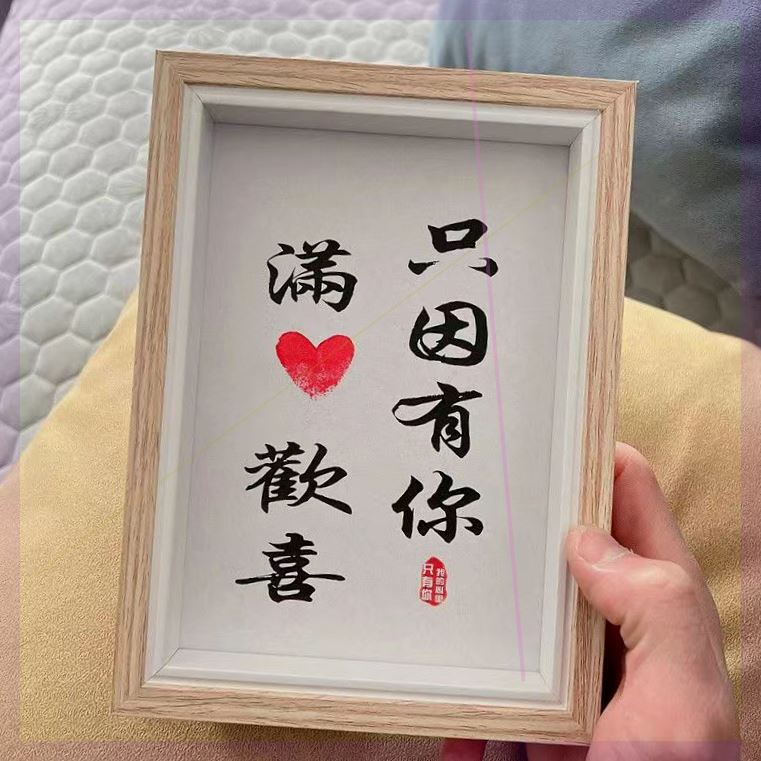 只因有你
滿❤歡喜
我的心里
只有你